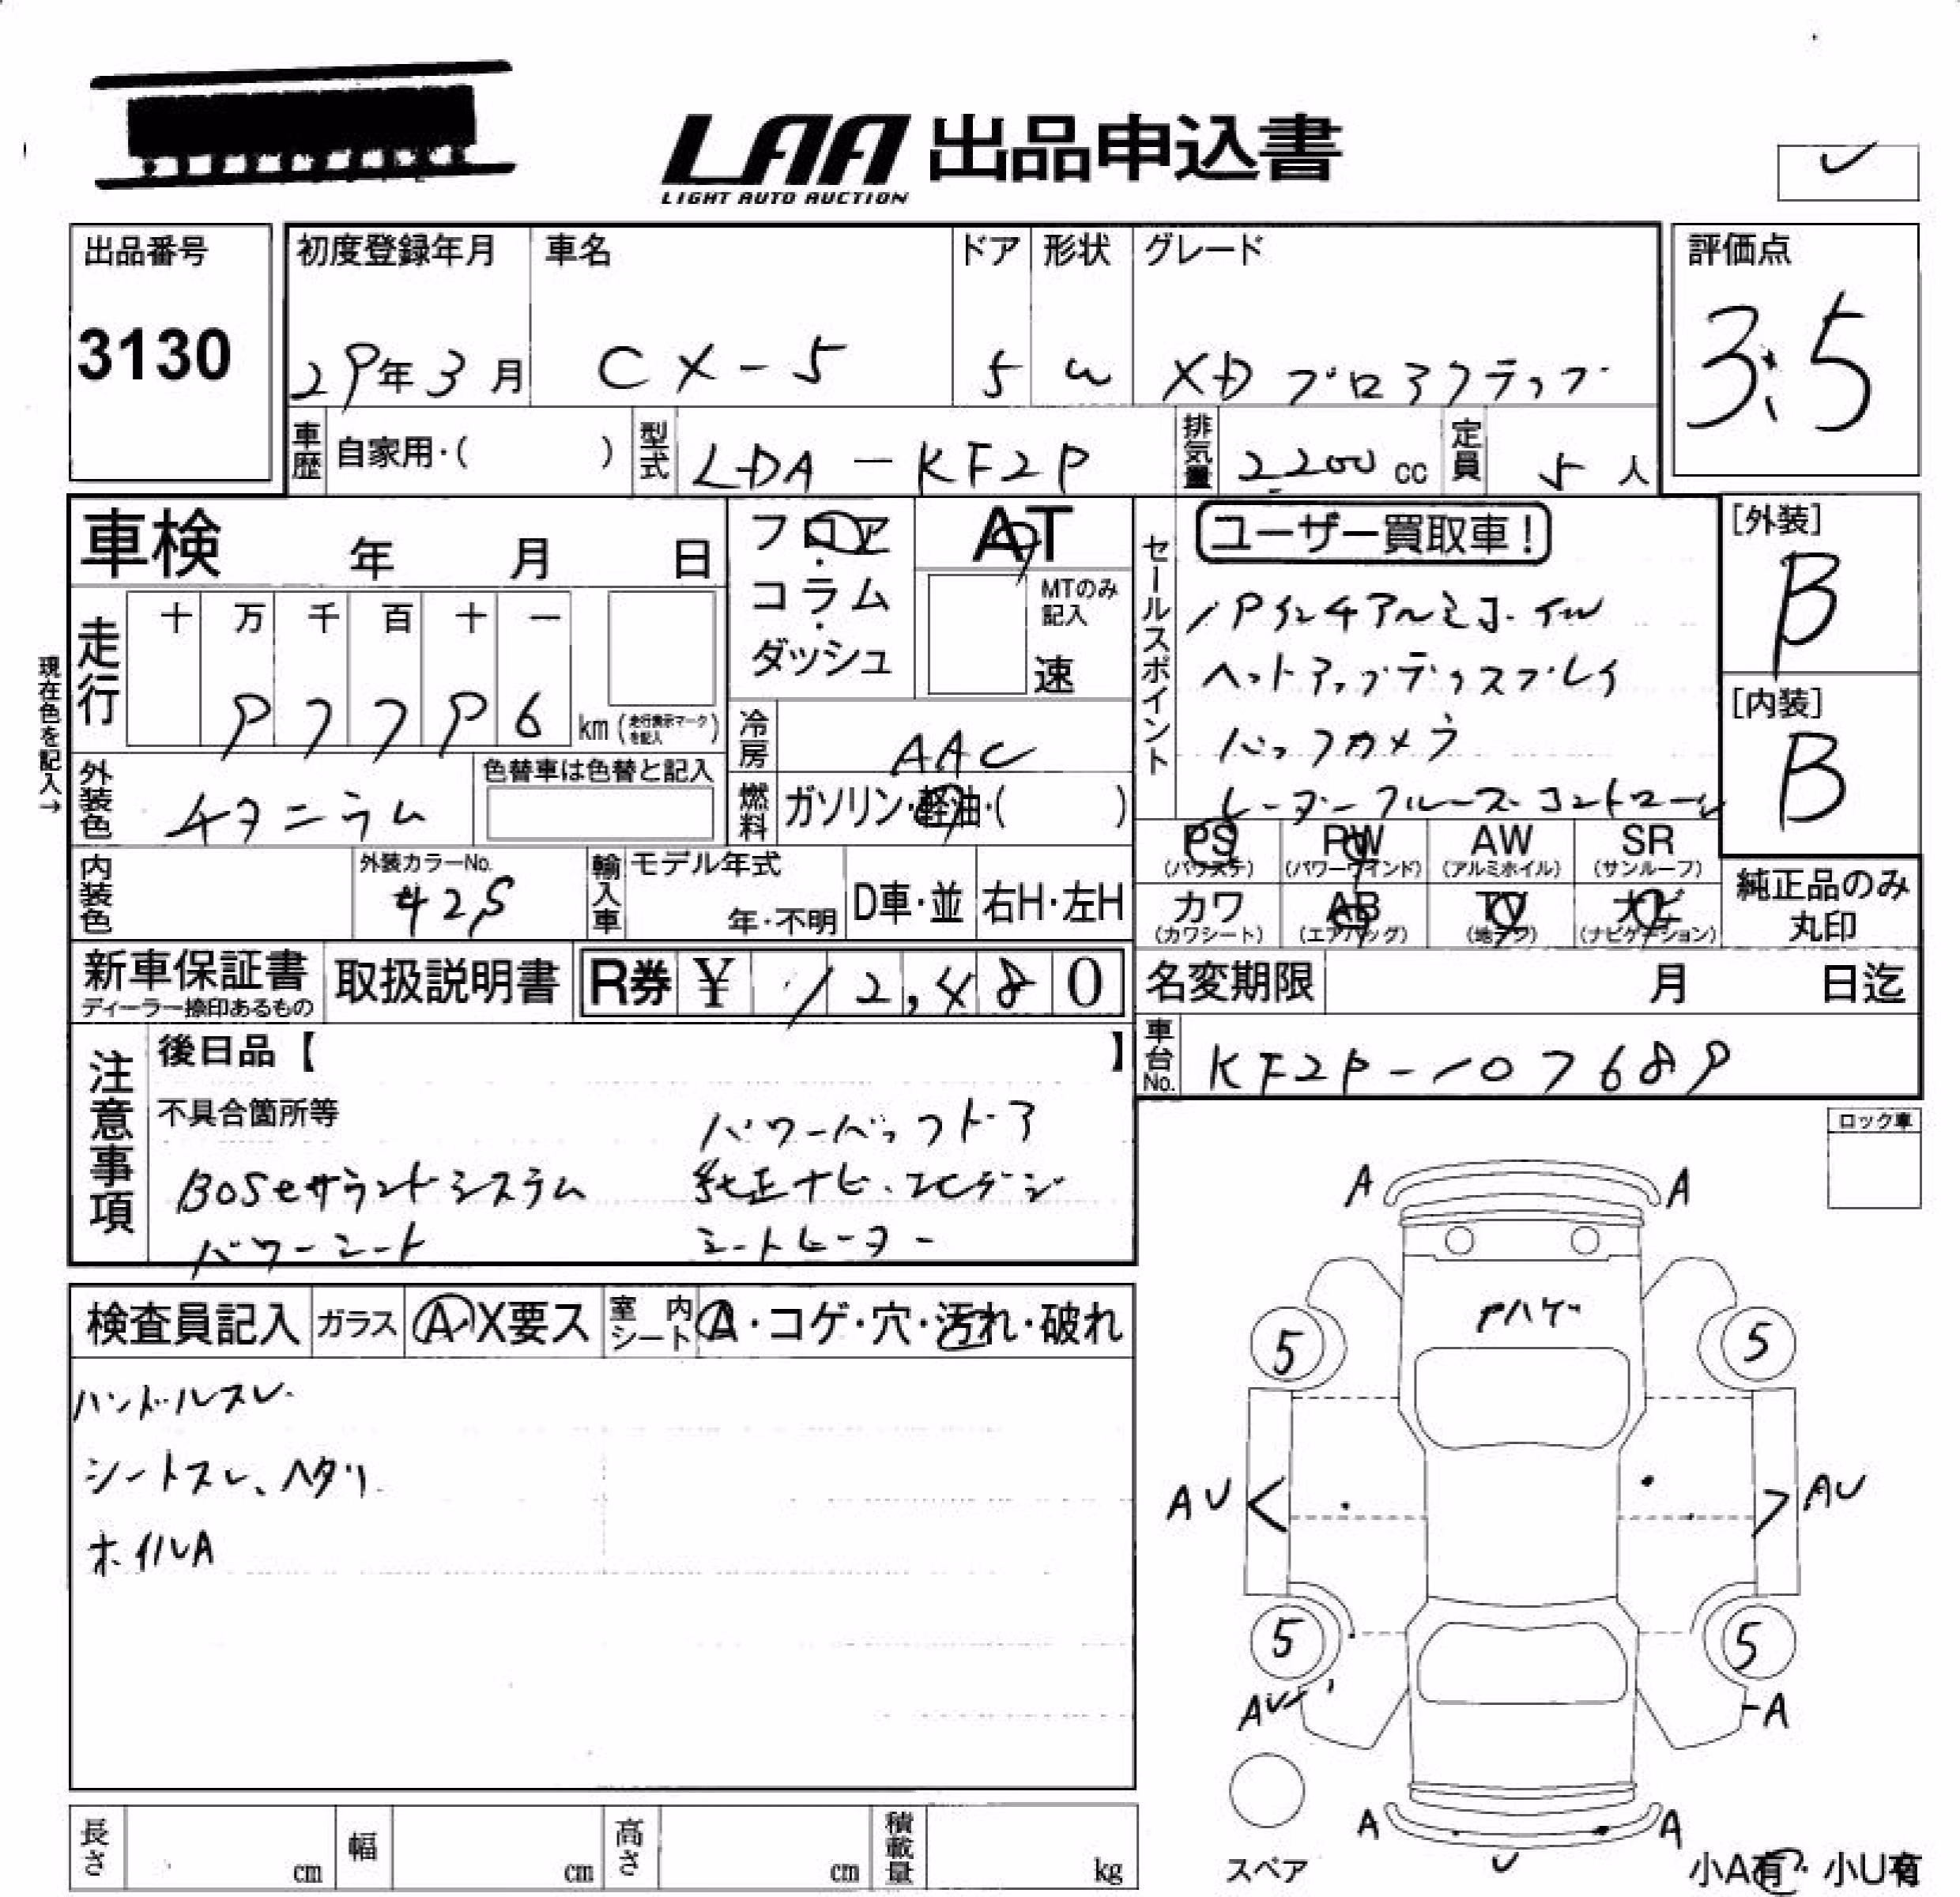 LAA 出品申込書
LIGHT AUTO AUCTION
出品番号
3130
初度登録年月
29年3月
車名
CX-5
ドア
5
形状
W
グレード
XD プロアクティブ
評価点
3.5
車歴 自家用・( )
型式 LDA-KF2P
排気量 2200cc
定員 5人
車検 年 月 日
フロア・コラム・ダッシュ
AT
MTのみ記入
速
セールスポイント
ユーザー買取車!
19インチアルミホイル
ヘットアップディスプレイ
バックカメラ
レーダークルーズコントロール
[外装]
B
[内装]
B
現在色を記入→
走行 十 万 千 百 十 一
97796 km (走行表示マークを記入)
冷房 AAC
外装色 チタニウム
色替車は色替と記入
燃料 ガソリン・軽油・( )
PS (パワステ)
PW (パワーウインド)
AW (アルミホイル)
SR (サンルーフ)
カワ (カワシート)
AB (エアバッグ)
TV (地デジ)
ナビ (ナビゲーション)
純正品のみ丸印
内装色
外装カラーNo.
42S
輸入車 モデル年式
年・不明
D車・並
右H・左H
新車保証書
ディーラー捺印あるもの
取扱説明書
R券 ¥ 12,480
名変期限 月 日迄
車台No. KF2P-107689
注意事項
後日品【 】
不具合箇所等
パワーバックドア
BOSEサラウンドシステム
純正ナビ.フルセグテレビ
パワーシート
シートヒーター
ロック車
検査員記入
ガラス A・X要ス
室内シート A・コゲ・穴・汚れ・破れ
ハンドルスレ
シートスレ、ヘタリ
ホイルA
A A
Pハゲ
5 5
AU AU
5 5
AU A
A A
U
スペア
小A有・小U有
長さ cm
幅 cm
高さ cm
積載量 kg